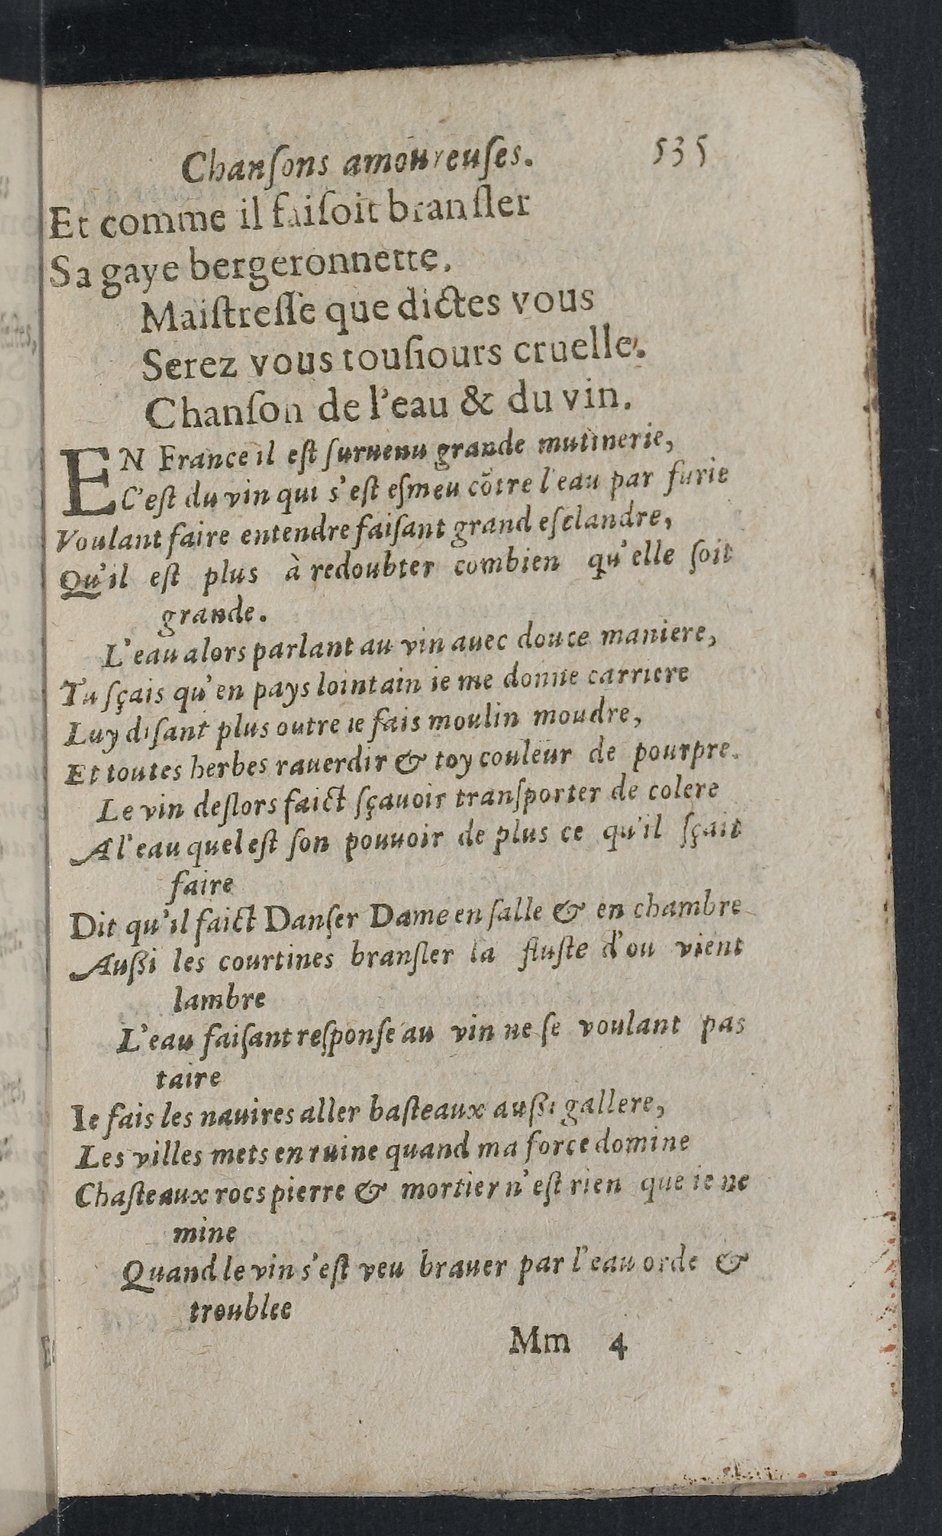 Chanſons amoureuſes. 535
Et comme il faiſoit branſler
Sa gaye bergeronnette.
Maiſtreſſe que dictes vous
Serez vous touſiours cruelle.
Chanſon de l'eau & du vin.
EN France il eſt ſuruenu grande mutinerie,
C'eſt du vin qui s'eſt eſmeu cõtre l'eau par furie
Voulant faire entendre faiſant grand eſclandre,
Qu'il eſt plus à redoubter combien qu'elle ſoit
grande.
L'eau alors parlant au vin auec douce maniere,
Tu ſçais qu'en pays lointain ie me donne carriere
Luy diſant plus outre ie fais moulin moudre,
Et toutes herbes rauerdir & toy couleur de pourpre.
Le vin deſlors faict ſçauoir tranſporter de colere
A l'eau quel eſt ſon pouuoir de plus ce qu'il ſçait
faire
Dit qu'il faict Danſer Dame en ſalle & en chambre
Außi les courtines branſler la fluſte d'ou vient
lambre
L'eau faiſant reſponſe au vin ne ſe voulant pas
taire
Ie fais les nauires aller baſteaux außi gallere,
Les villes mets en ruine quand ma force domine
Chaſteaux rocs pierre & mortier n'eſt rien que ie ne
mine
Quand le vin s'eſt veu brauer par l'eau orde &
troublee
Mm 4